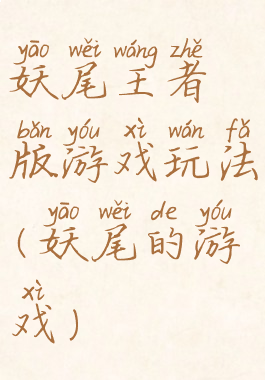 yāo wěi wáng zhě
妖尾王者
bǎn yóu xì wán fǎ
版游戏玩法
yāo wěi de yóu
(妖尾的游
xì
戏)